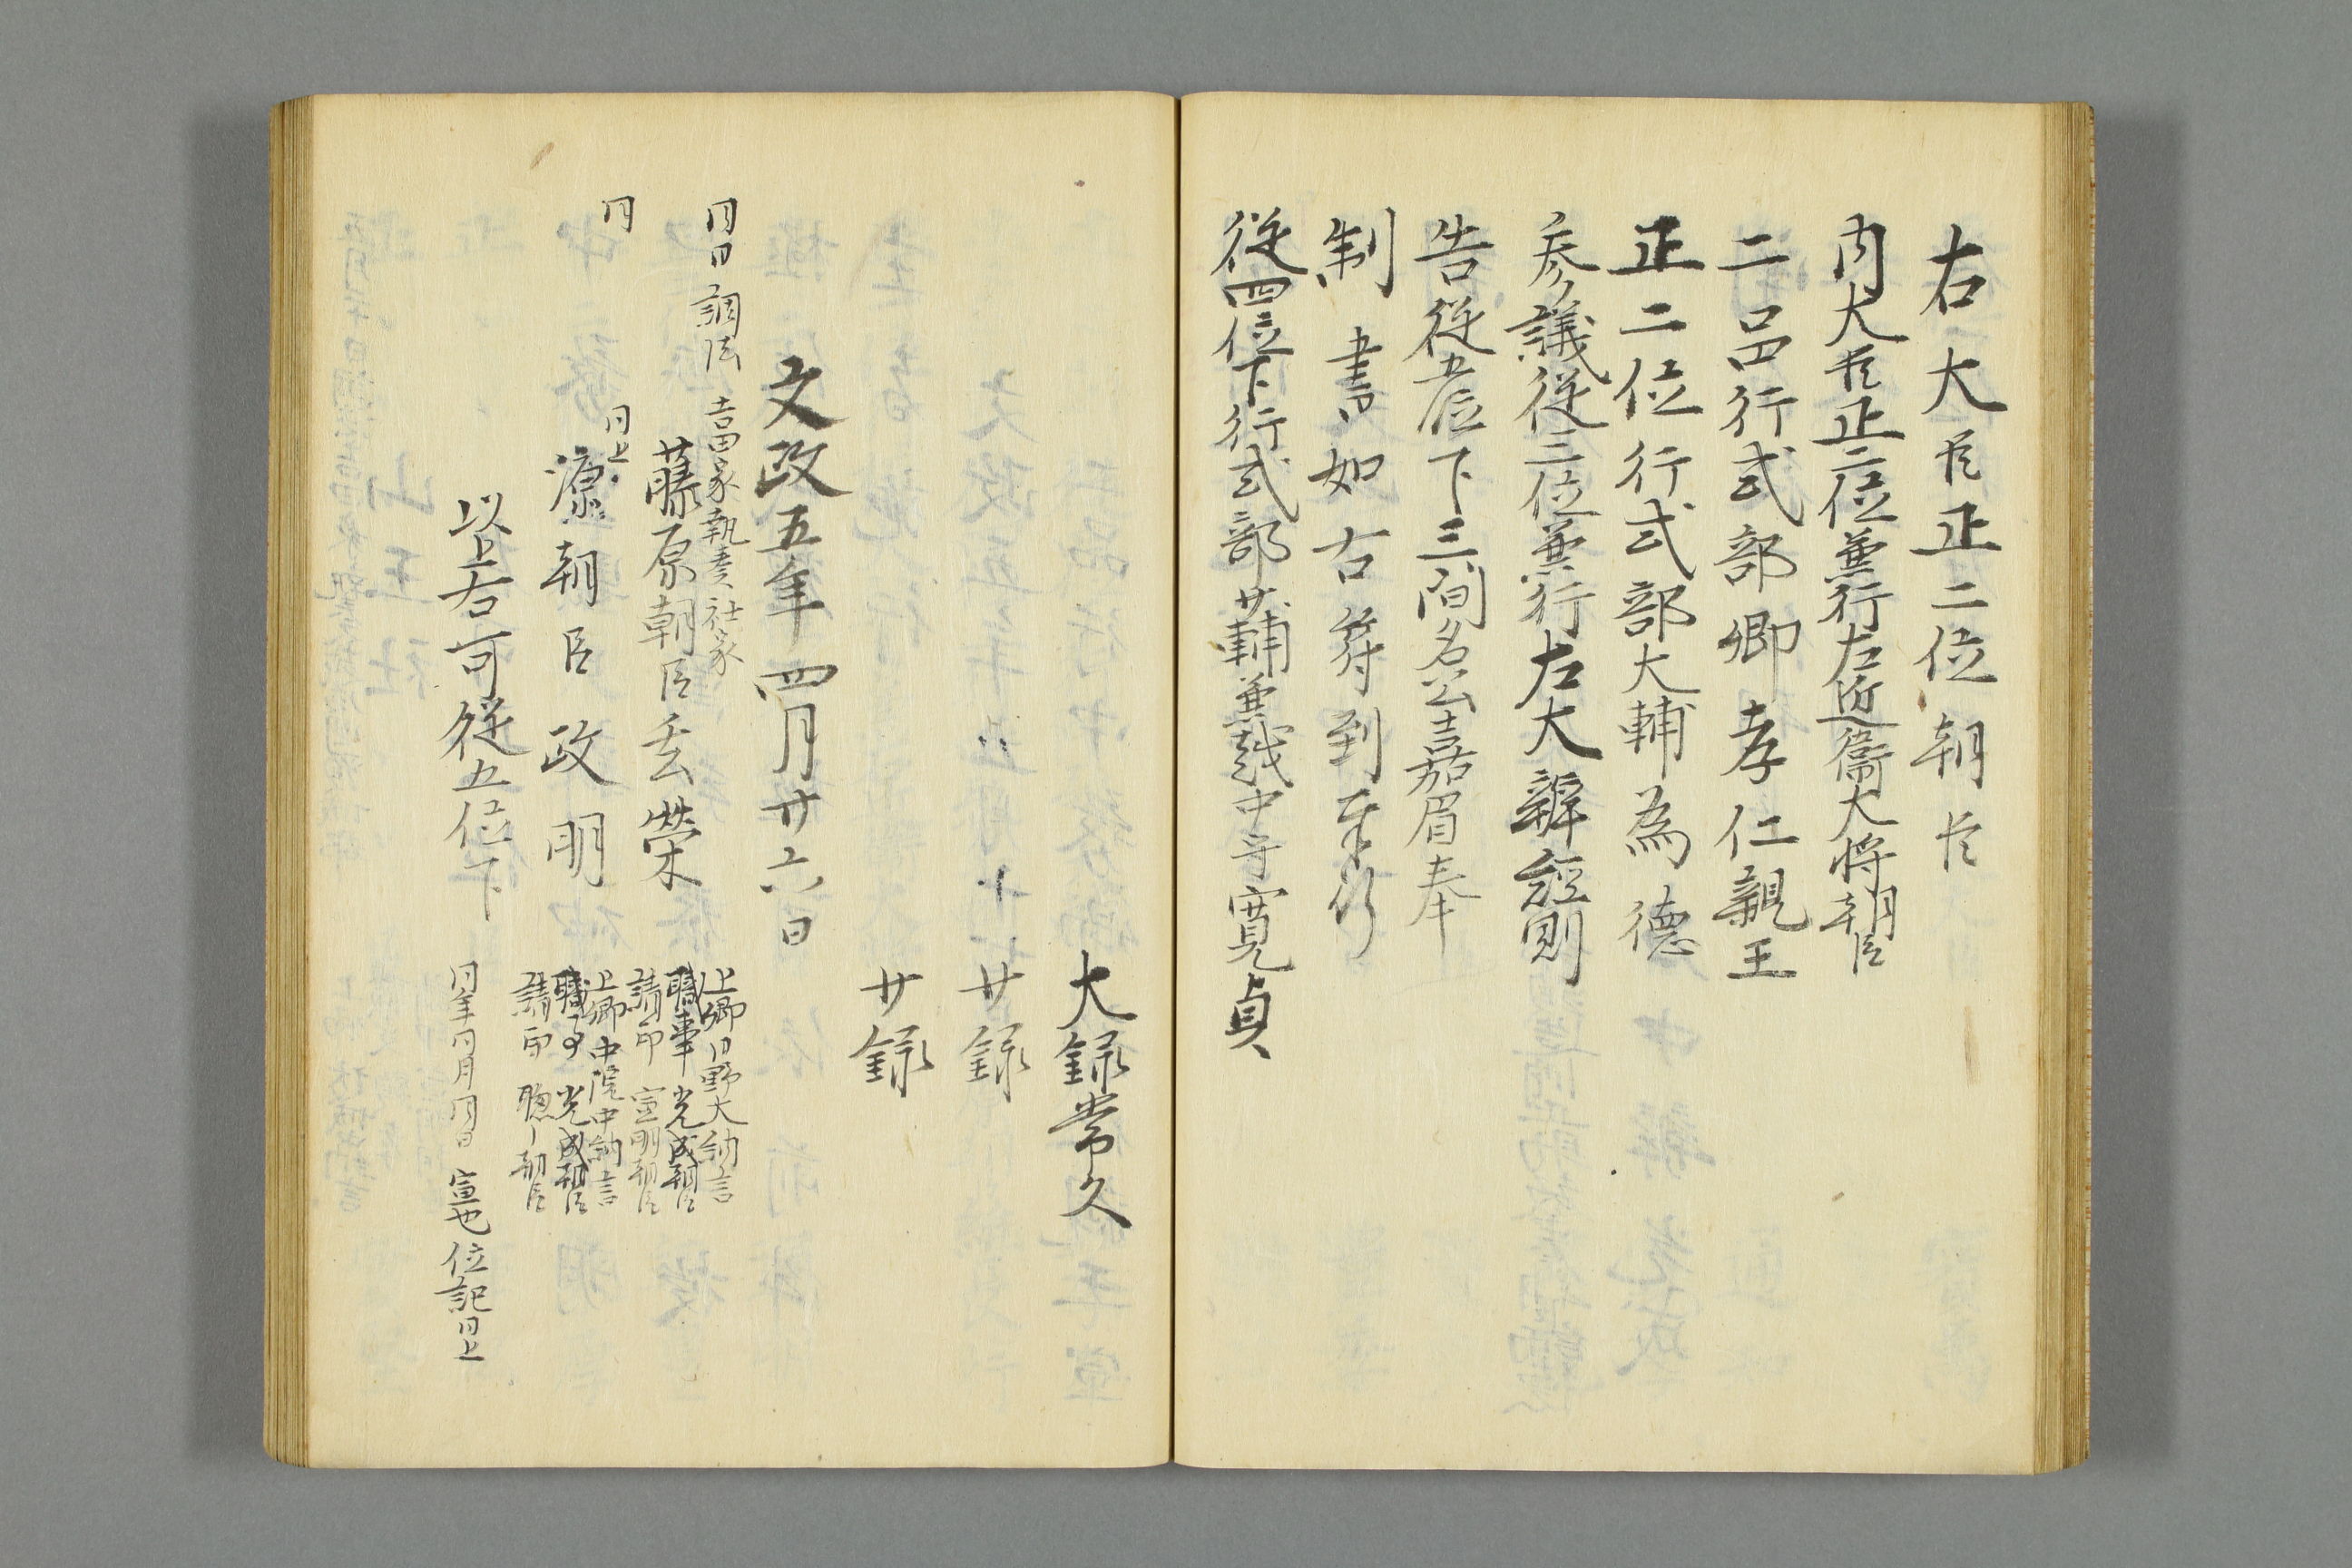 右大臣正二位朝臣
内大臣正二位兼行左近衛大将朝臣
二品行式部卿孝仁親王
正二位行式部大輔為徳
参議従三位兼行左大辨経則
告従五位下三間名公吉嘉眉奉
制書如右符到奉行
従四位下行式部少輔兼越中守寛貞
大録常久
少録
少録
文政五年四月廿六日
同日調法 吉田家執奏社家
藤原朝臣 栄
上卿日野大納言
職事光成朝臣
請印宣明朝臣
同 同上
源朝臣政明
上卿中院中納言
職事光成朝臣
請印聡々朝臣
以上右可従五位下
同年同月同日宣也位記同上